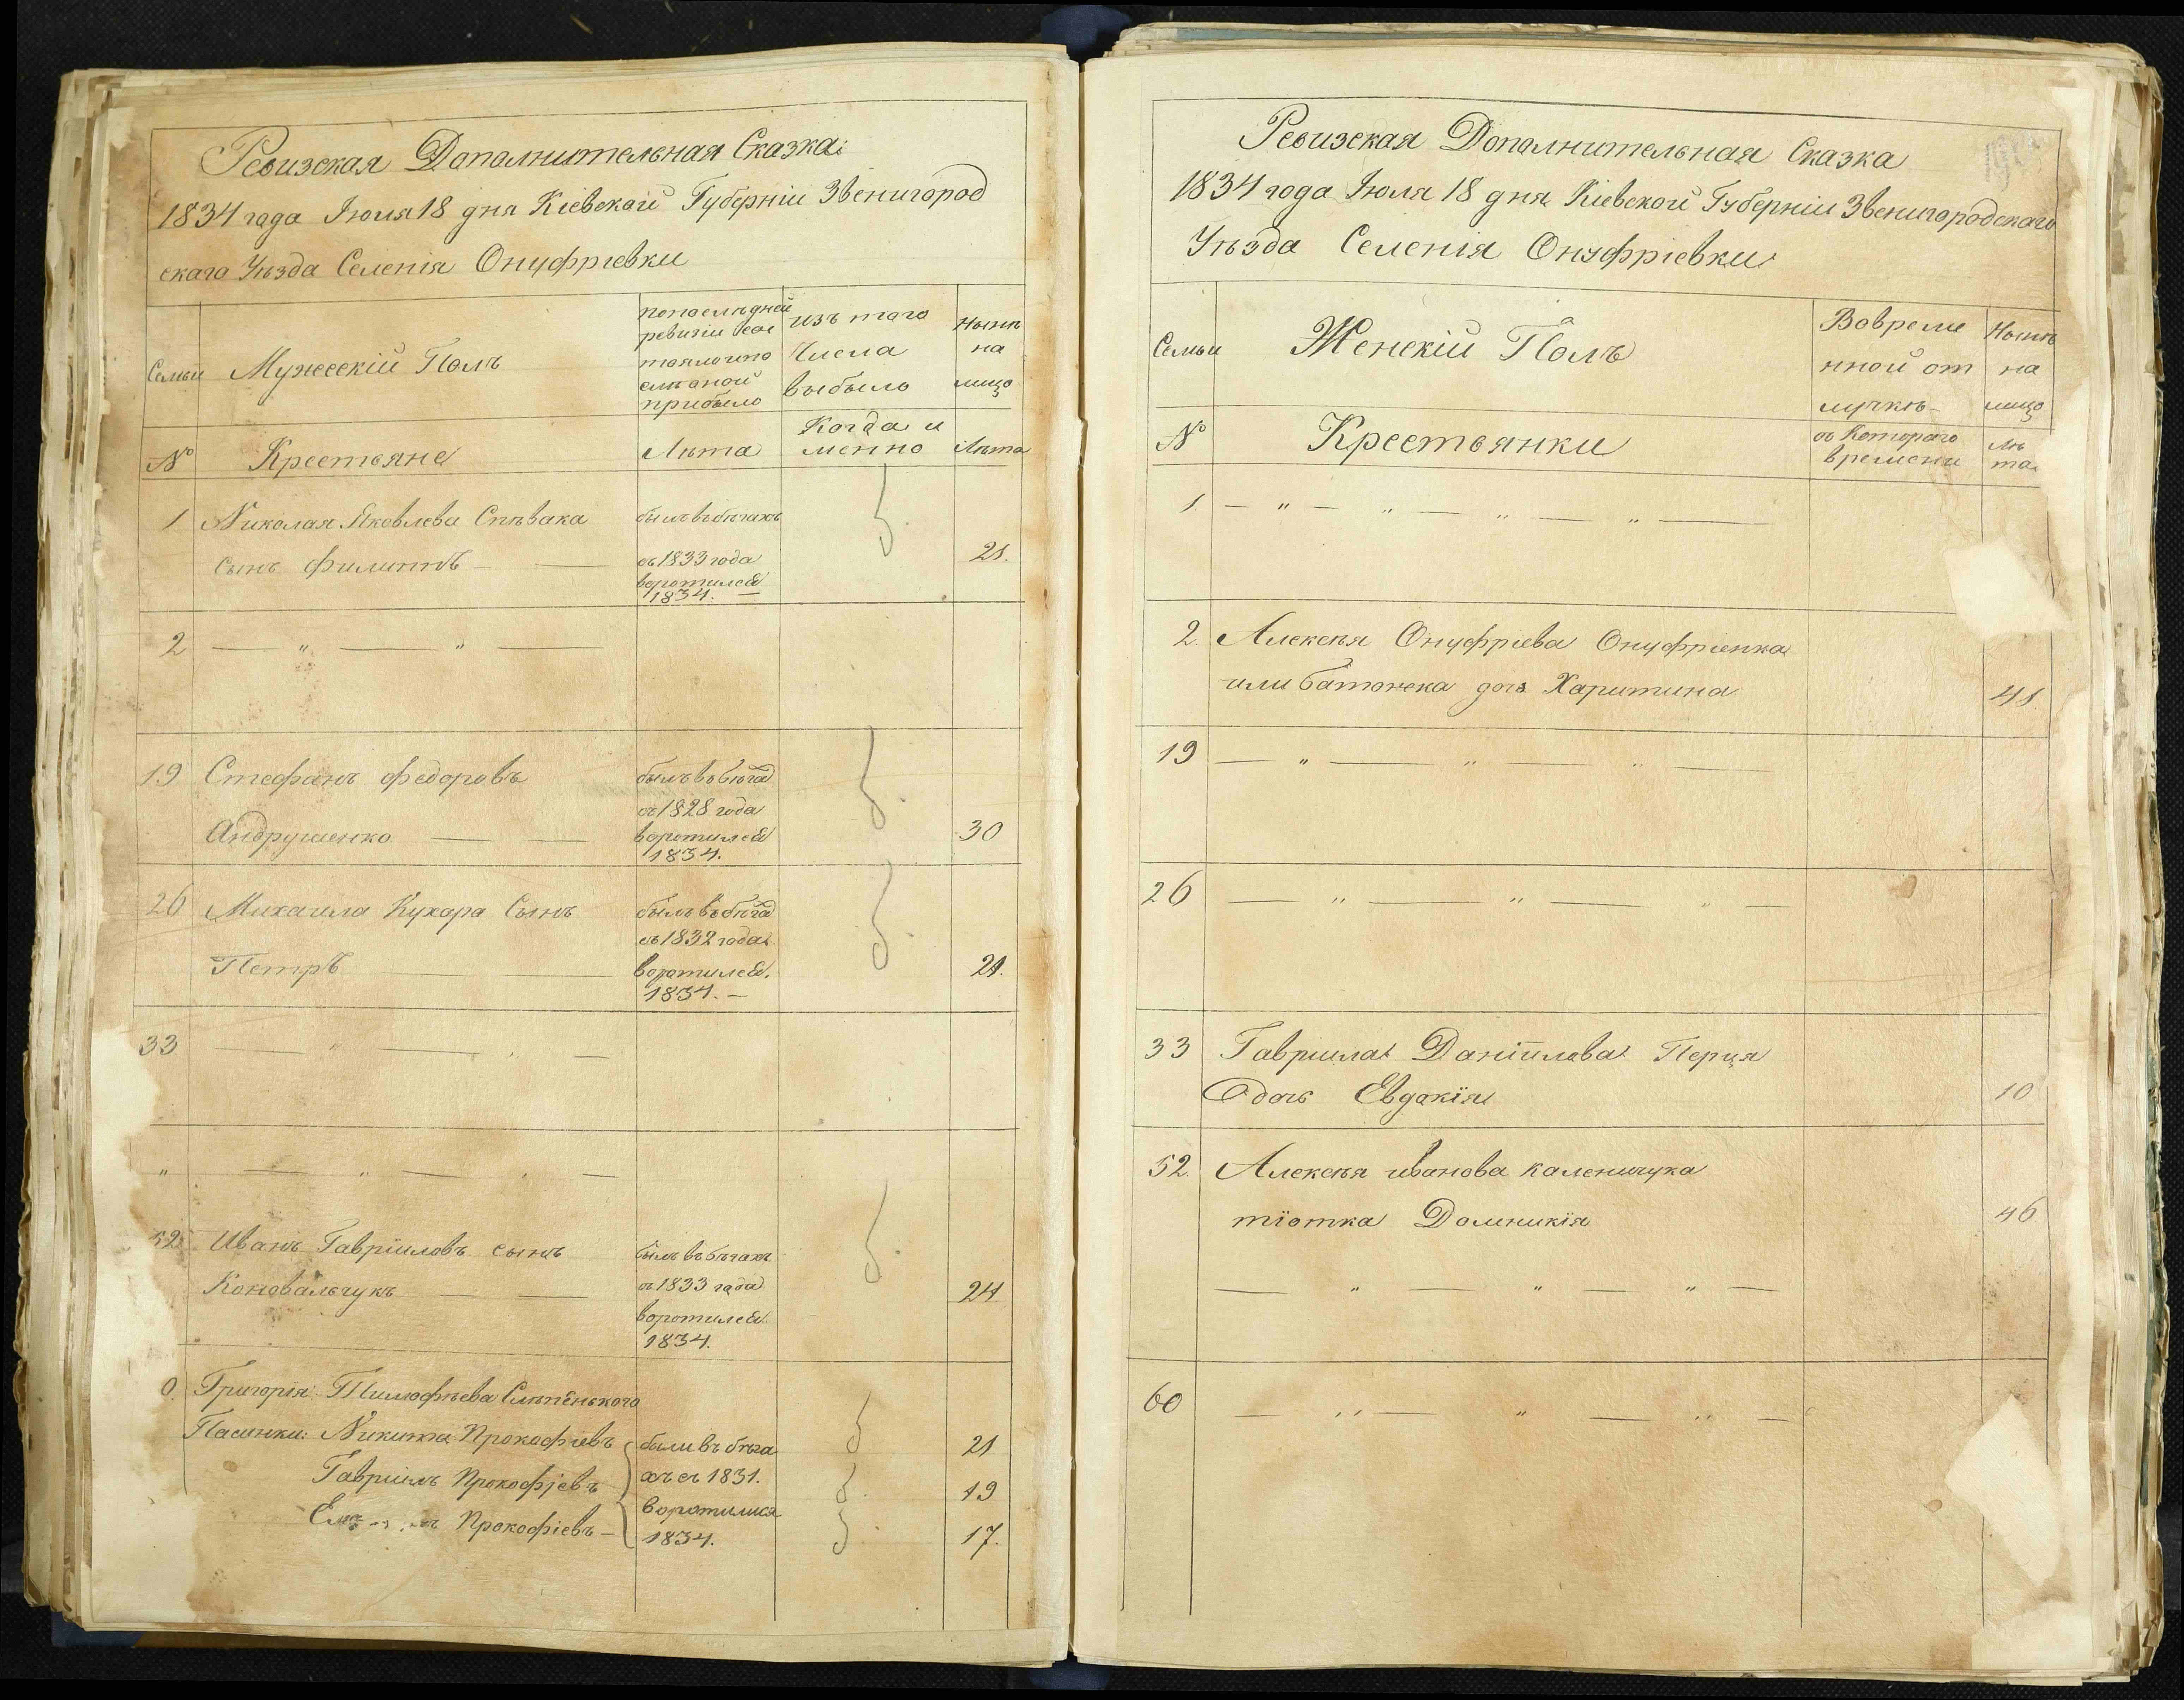 Ревизская Дополнительная Сказка
1834 года Июля 18 дня Кіевской Губерніи Звенигород
скаго Уѣзда Селенія Онуфріевки
Семьи
Мужескій Полъ
попослѣдней
ревизіи сос
тояло и по
слѣ оной
прибыло
изъ того
Числа
выбыло
Нынѣ
на
лицо
№
Крестьяне
Лѣта
Когда и
менно
Лѣта
1
Николая Яковлева Спѣвака
сынъ Филиппъ
былъ въ бѣгахъ
съ 1833 года
воротился
1834.
21.
2
19
Стефанъ Федоровъ
Андрущенко
былъ въ бѣгах
съ 1828 года
воротился
1834.
30
26
Михаила Кухара Сынъ
Петръ
былъ въ бѣгах
съ 1832 года
воротился.
1834.
21.
33
52
Иванъ Гавріиловъ сынъ
Коновальчукъ
былъ въ бѣгахъ
съ 1833 года
воротился
1834.
24
0.
Григорія Тимофѣева Слѣпенького
Пасинки: Никита Прокофіевъ
Гавріилъ Прокофіевъ
Прокофіевъ
были въ бѣга
хъ съ 1831.
воротились
1834.
21
19
17.
Ревизская Дополнительная Сказка
1834 года Июля 18 дня Кіевской Губерніи Звенигородскаго
Уѣзда Селенія Онуфріевки
Семьи
Женскій Полъ
Вовреме
нной от
лучкѣ
Нынѣ
на
лицо
№
Крестьянки
съ Котораго
времени
Лѣ
та
1
2.
Алексѣя Онуфріева Онуфріенка
или Батонска дочь Харитина
41.
19
26
33
Гавріила Даніилова Перця
дочь Евдокія
10
52.
Алексѣя иванова каленичука
тіотка Домникія
46
60